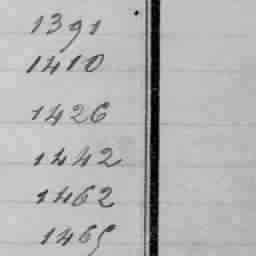 1391
1410
1426
1442
1462
1465